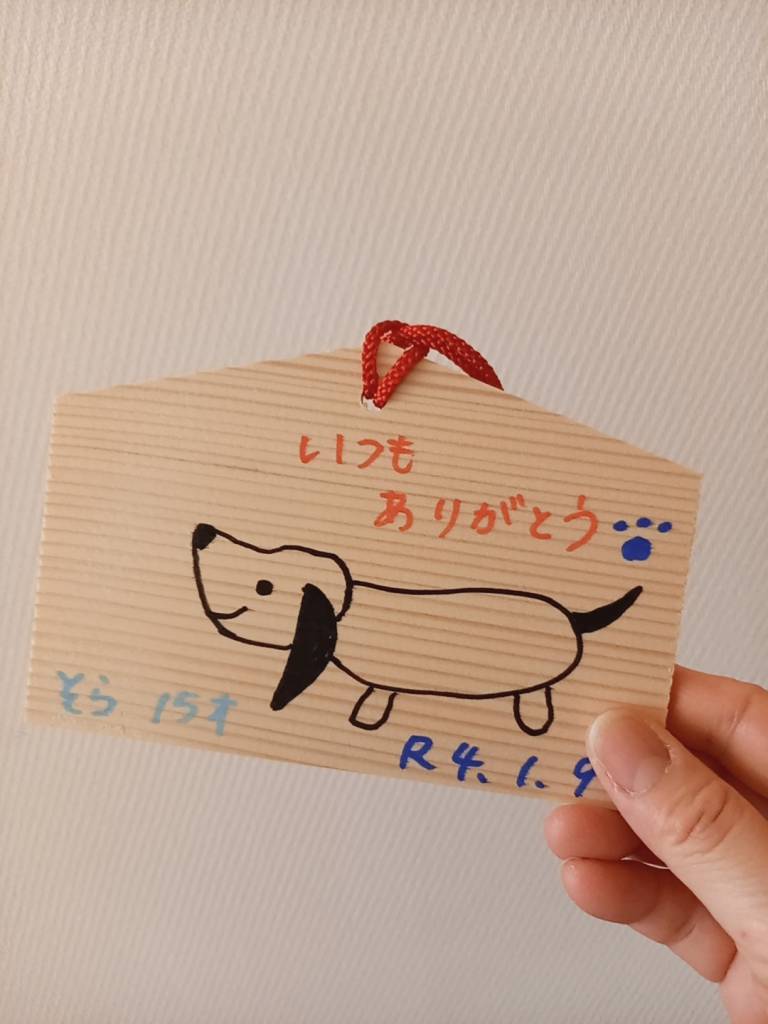 いつも
ありがとう
そら 15才
R4.1.9